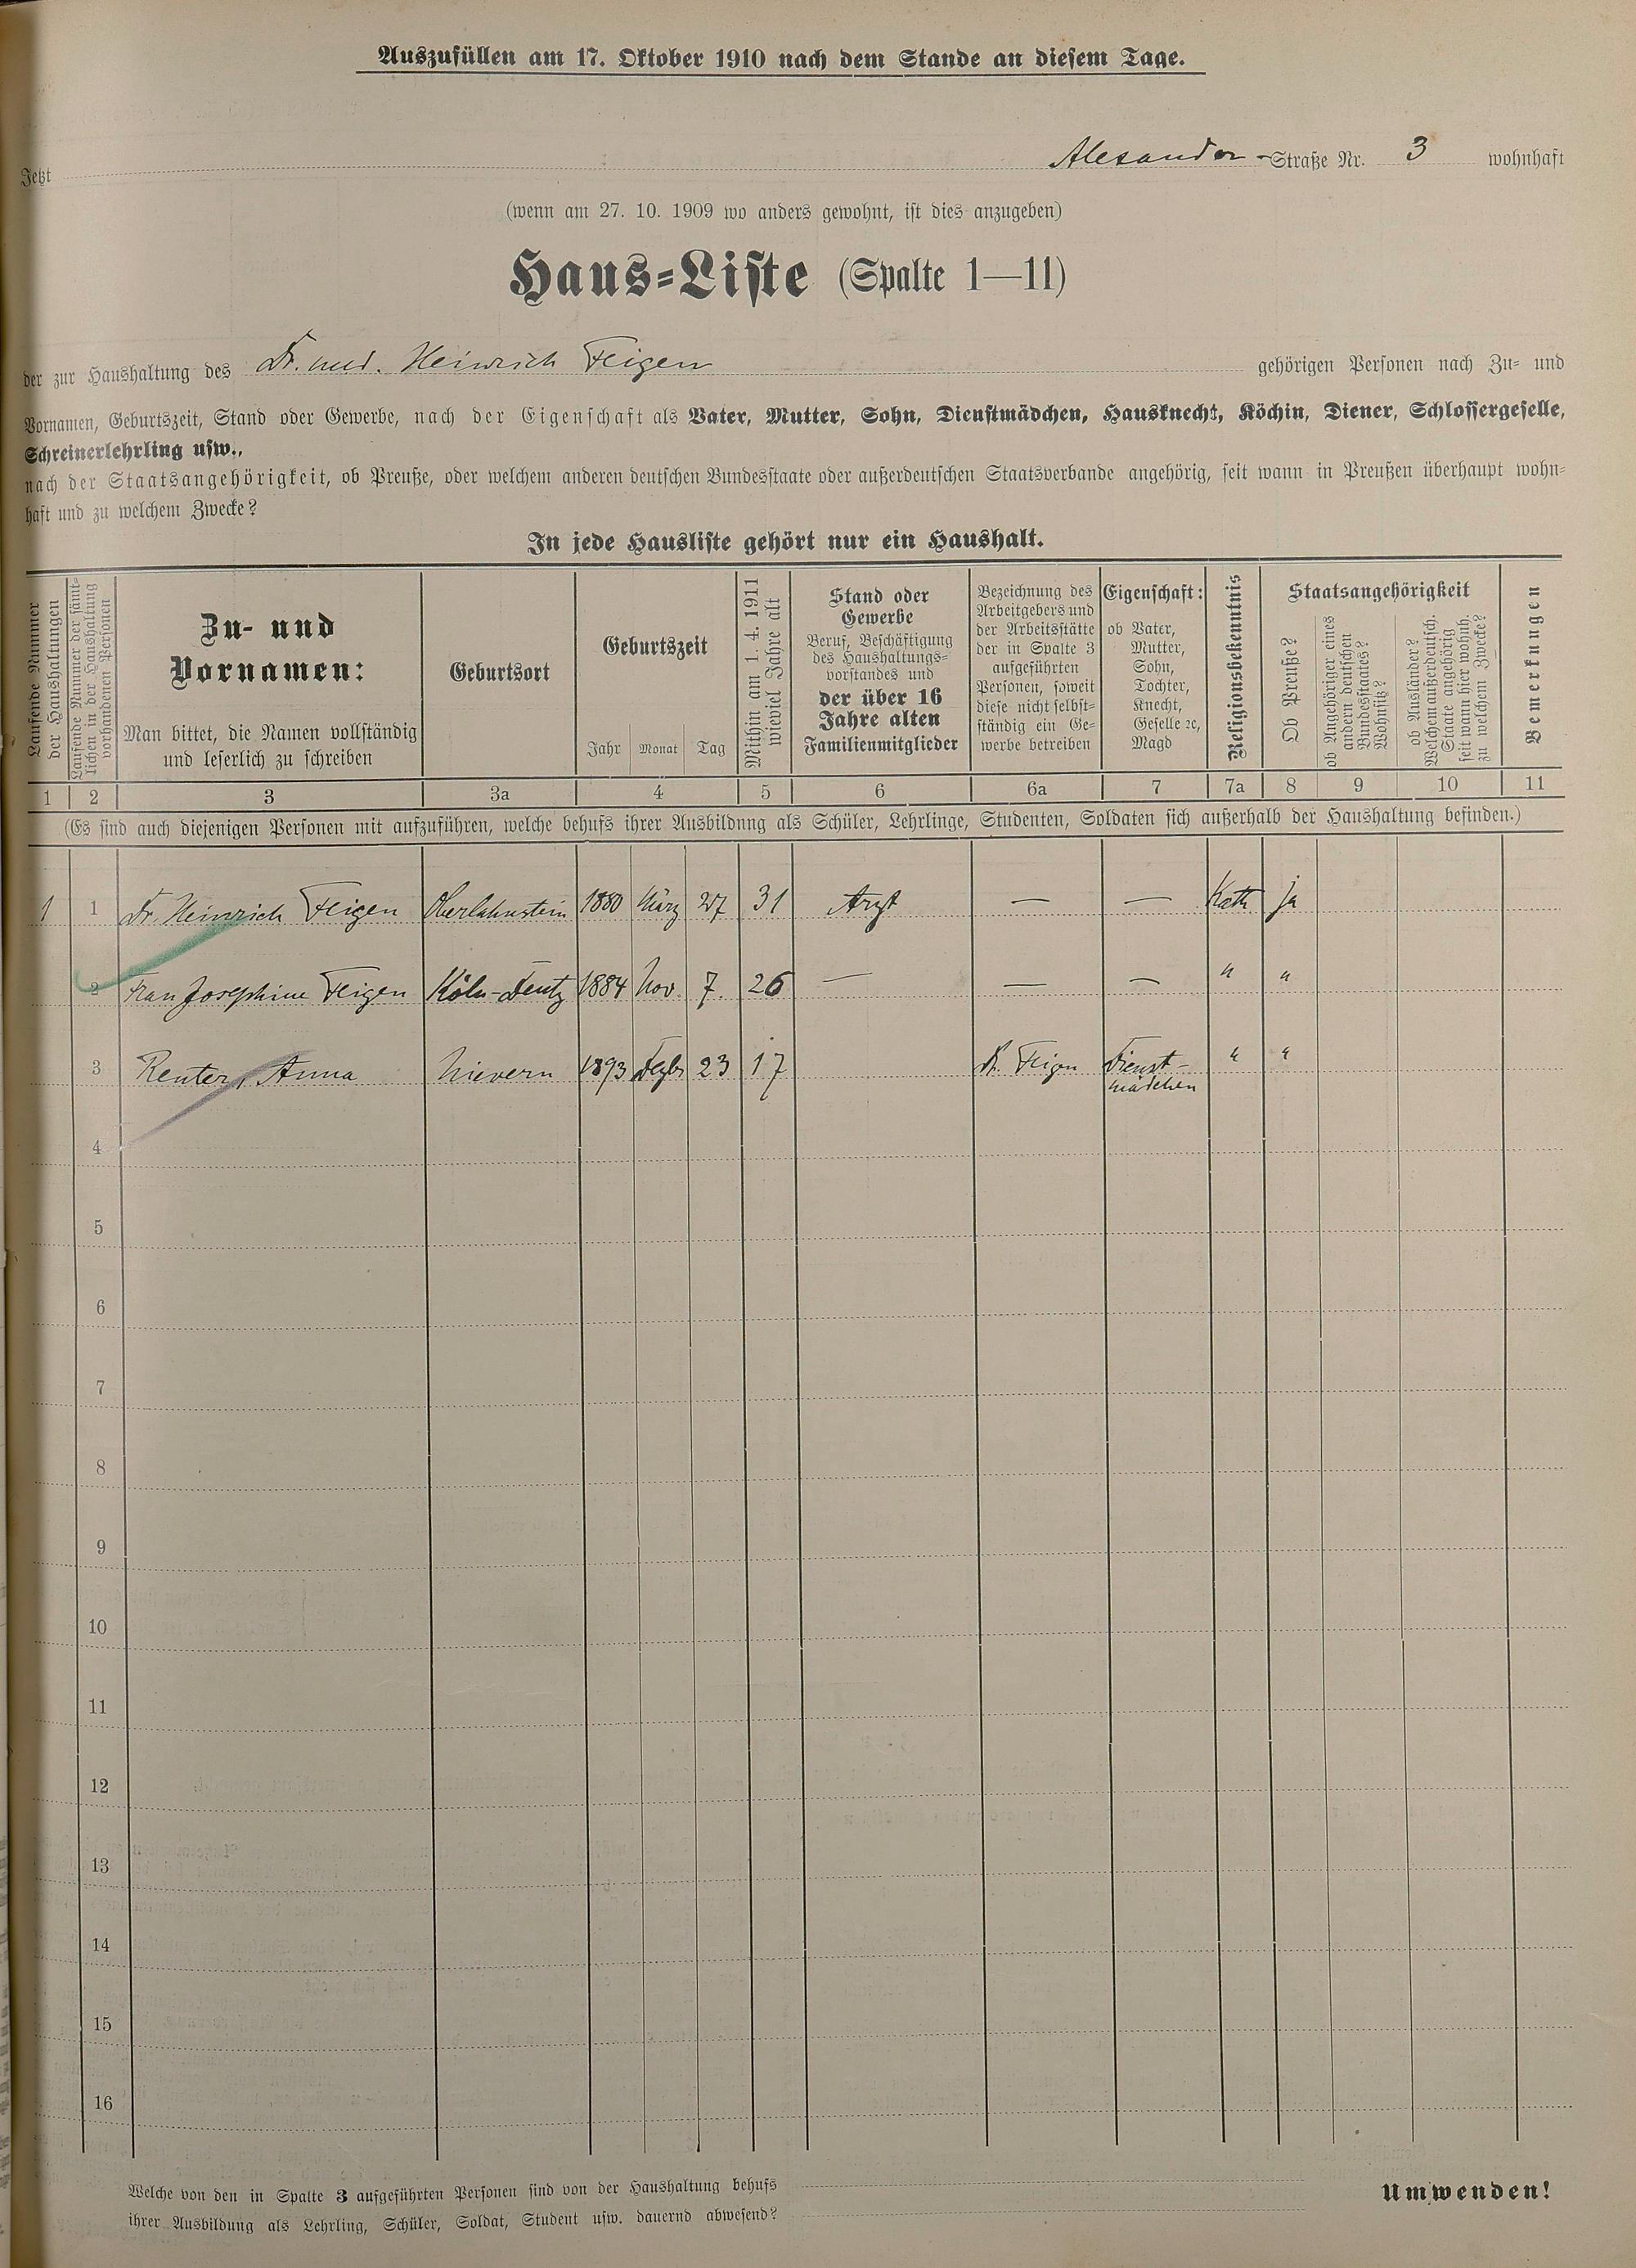 Auszufüllen am 17. Oktober 1910 nach dem Stande an diesem Tage.
Jetzt Alexander-Straße Nr. 3 wohnhaft
(wenn am 27. 10. 1909 wo anders gewohnt, ist dies anzugeben)
Haus-Liste (Spalte 1—11)
der zur Haushaltung des Dr. med. Heinrich Feigen gehörigen Personen nach Zu- und
Vornamen, Geburtszeit, Stand oder Gewerbe, nach der Eigenschaft als Vater, Mutter, Sohn, Dienstmädchen, Hausknecht, Köchin, Diener, Schlossergeselle,
Schreinerlehrling usw.,
nach der Staatsangehörigkeit, ob Preuße, oder welchem anderen deutschen Bundesstaate oder außerdeutschen Staatsverbande angehörig, seit wann in Preußen überhaupt wohn-
haft und zu welchem Zwecke?
In jede Hausliste gehört nur ein Haushalt.
Laufende Nummer
der Haushaltungen
Laufende Nummer der sämt-
lichen in der Haushaltung
vorhandenen Personen
Zu- und
Vornamen:
Man bittet, die Namen vollständig
und leserlich zu schreiben
Geburtsort
Geburtszeit
Jahr Monat Tag
Mithin am 1. 4. 1911
wieviel Jahre alt
Stand oder
Gewerbe
Beruf, Beschäftigung
des Haushaltungs-
vorstandes und
der über 16
Jahre alten
Familienmitglieder
Bezeichnung des
Arbeitgebers und
der Arbeitsstätte
der in Spalte 3
aufgeführten
Personen, soweit
diese nicht selbst-
ständig ein Ge-
werbe betreiben
Eigenschaft:
ob Vater,
Mutter,
Sohn,
Tochter,
Knecht,
Geselle ꝛc,
Magd
Religionsbekenntnis
Staatsangehörigkeit
Ob Preuße?
ob Angehöriger eines
andern deutschen
Bundesstaates?
Wohnsitz?
ob Ausländer?
Welchem außerdeutsch.
Staate angehörig
seit wann hier wohnh.
zu welchem Zwecke?
Bemerkungen
1 2 3 3a 4 5 6 6a 7 7a 8 9 10 11
(Es sind auch diejenigen Personen mit aufzuführen, welche behufs ihrer Ausbildung als Schüler, Lehrlinge, Studenten, Soldaten sich außerhalb der Haushaltung befinden.)
1 1 Dr. Heinrich Feigen Oberlahnstein 1880 März 27 31 Arzt — — Kath. ja
2 Frau Josephine Feigen Köln-Deutz 1884 Nov. 7. 26 — — — " "
3 Reuter, Anna Nievern 1893 Dezbr 23 17 Dr. Feigen Dienst-
mädchen " "
4
5
6
7
8
9
10
11
12
13
14
15
16
Welche von den in Spalte 3 aufgeführten Personen sind von der Haushaltung behufs
ihrer Ausbildung als Lehrling, Schüler, Soldat, Student usw. dauernd abwesend?
Umwenden!